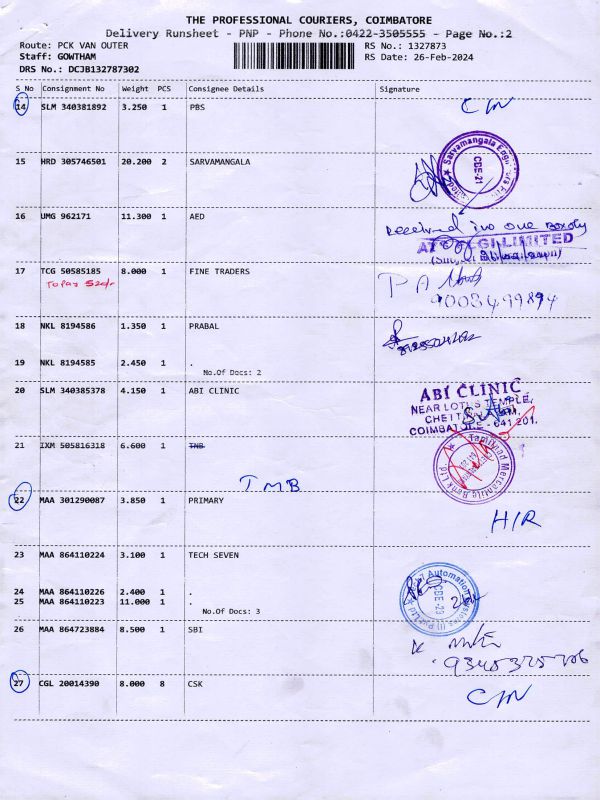 THE PROFESSIONAL COURIERS, COIMBATORE
Delivery Runsheet - PNP - Phone No.:0422-3505555 - Page No.:2
Route: PCK VAN OUTER RS No.: 1327873
Staff: GOWTHAM RS Date: 26-Feb-2024
DRS No.: DCJB132787302
S_No Consignment No Weight PCS Consignee Details Signature
14 SLM 340381892 3.250 1 PBS C/N
15 HRD 305746501 20.200 2 SARVAMANGALA
Sarvamangala
CBE-21
16 UMG 962171 11.300 1 AED
Received ino one Box only
LGI LIMITED
17 TCG 50585185 8.000 1 FINE TRADERS
Topaz
18 NKL 8194586 1.350 1 PRABAL
19 NKL 8194585 2.450 1 .
No.Of Docs: 2
20 SLM 340385378 4.150 1 ABI CLINIC
ABI CLINIC
NEAR LOTUS TEMPLE,
COIMBATORE - 641 201.
21 IXM 505816318 6.600 1 TNB
TMB
Tamilnad Mercantile Bank Ltd
22 MAA 301290087 3.850 1 PRIMARY
H/R
23 MAA 864110224 3.100 1 TECH SEVEN
24 MAA 864110226 2.400 1 .
25 MAA 864110223 11.000 1 .
No.Of Docs: 3
Automation
CBE-29
26 MAA 864723884 8.500 1 SBI
27 CGL 20014390 8.000 8 CSK C/N